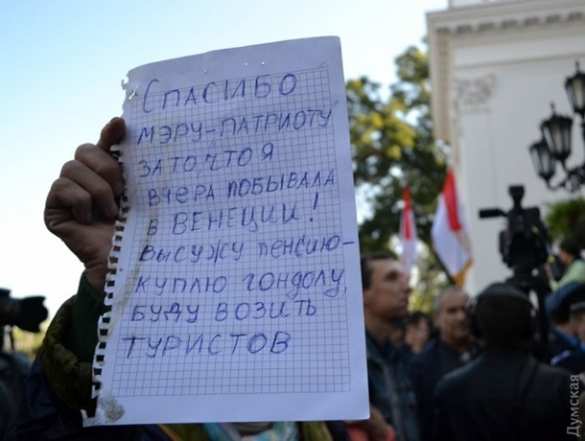 СПАСИБО
МЭРУ-ПАТРИОТУ
ЗА ТО ЧТО Я
ВЧЕРА ПОБЫВАЛА
В ВЕНЕЦИИ!
ВЫСУЖУ ПЕНСИЮ-
КУПЛЮ ГОНДОЛУ,
БУДУ ВОЗИТЬ
ТУРИСТОВ
Думская